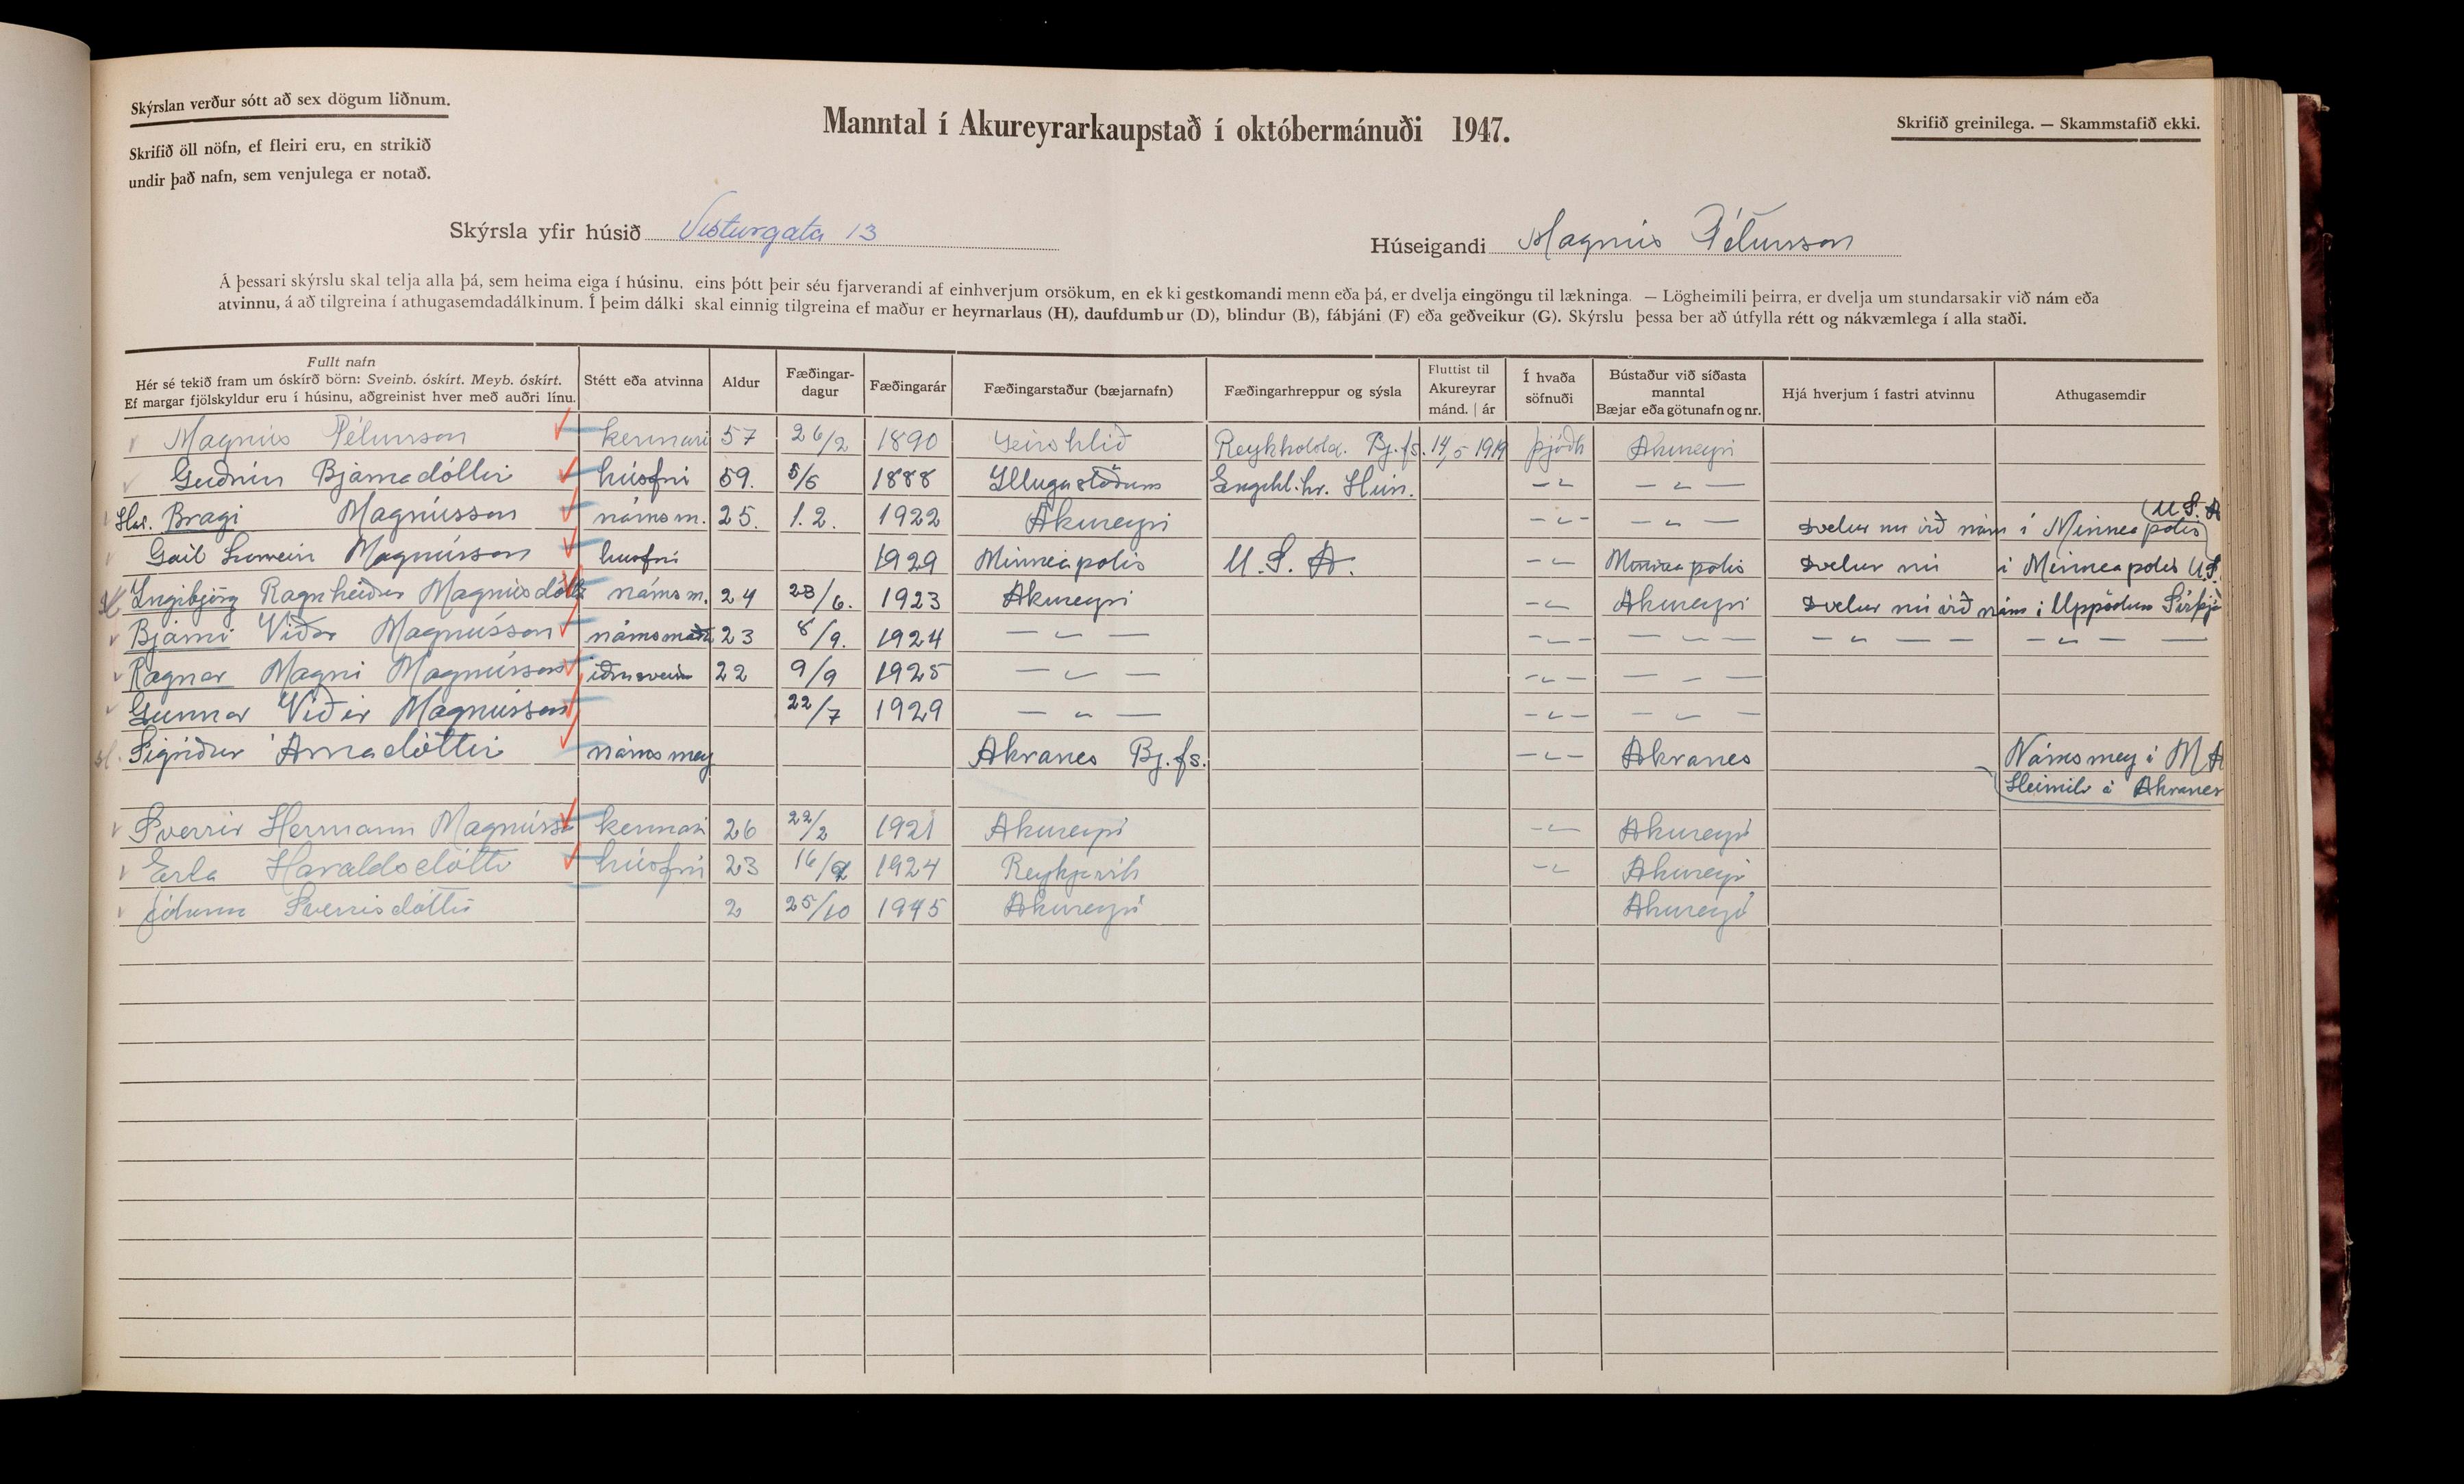 Skýrslan verður sótt að sex dögum liðnum.
Skrifið öll nöfn, ef fleiri eru, en strikið
undir það nafn, sem venjulega er notað.
Manntal í Akureyrarkaupstað í októbermánuði 1947.
Skrifið greinilega. — Skammstafið ekki.
Skýrsla yfir húsið Vesturgata 13
Húseigandi Magnús Pétursson
Á þessari skýrslu skal telja alla þá, sem heima eiga í húsinu, eins þótt þeir séu fjarverandi af einhverjum orsökum, en ekki gestkomandi menn eða þá, er dvelja eingöngu til lækninga. — Lögheimili þeirra, er dvelja um stundarsakir við nám eða
atvinnu, á að tilgreina í athugasemdadálkinum. Í þeim dálki skal einnig tilgreina ef maður er heyrnarlaus (H), daufdumbur (D), blindur (B), fábjáni (F) eða geðveikur (G). Skýrslu þessa ber að útfylla rétt og nákvæmlega í alla staði.
Fullt nafn
Hér sé tekið fram um óskírð börn: Sveinb. óskírt. Meyb. óskírt.
Ef margar fjölskyldur eru í húsinu, aðgreinist hver með auðri línu.
Stétt eða atvinna
Aldur
Fæðingar-
dagur
Fæðingarár
Fæðingarstaður (bæjarnafn)
Fæðingarhreppur og sýsla
Fluttist til
Akureyrar
mánd. | ár
Í hvaða
söfnuði
Bústaður við síðasta
manntal
Bæjar eða götunafn og nr.
Hjá hverjum í fastri atvinnu
Athugasemdir
Magnús Pétursson kennari 57 26/2 1890 Geirshlíð Reykholtsd. Bj.fs. 14/5 1919 þjóðk Akureyri
Guðrún Bjarnadóttir húsfrú 59. 5/6 1888 Illugastöðum Engihl.hr. Hún. -"- — " —
Bragi Magnússon námsm. 25. 1.2. 1922 Akureyri -"- — " — Dvelur nú við nám í Minneapolis (U.S.A
Gail Magnússon húsfrú 1929 Minneapolis U.S.A. -"- Minneapolis Dvelur nú í Minneapolis U.S.
Ingibjörg Ragnheiður Magnúsdótt námsm. 24 23/6. 1923 Akureyri -"- Akureyri Dvelur nú við nám í Uppsölum Svíþjó
Bjarni Viðar Magnússon námsmað 23 8/9. 1924 — " — -"- — " — — " — — — " — —
Ragnar Magni Magnússon iðnsvein 22 9/9 1925 — " — -"- — " —
Gunnar Víðir Magnússon 22/7 1929 — " — -"- — " —
Sigríður Árnadóttir námsmey Akranes Bj.fs. -"- Akranes Námsmey í MA
Heimili á Akranes
Sverrir Hermann Magnúss kennari 26 22/2 1921 Akureyri -"- Akureyri
Erla Haraldsdóttir húsfrú 23 16/9 1924 Reykjavík -"- Akureyri
Jódunn Sverrisdóttir 2 25/10 1945 Akureyri Akureyri